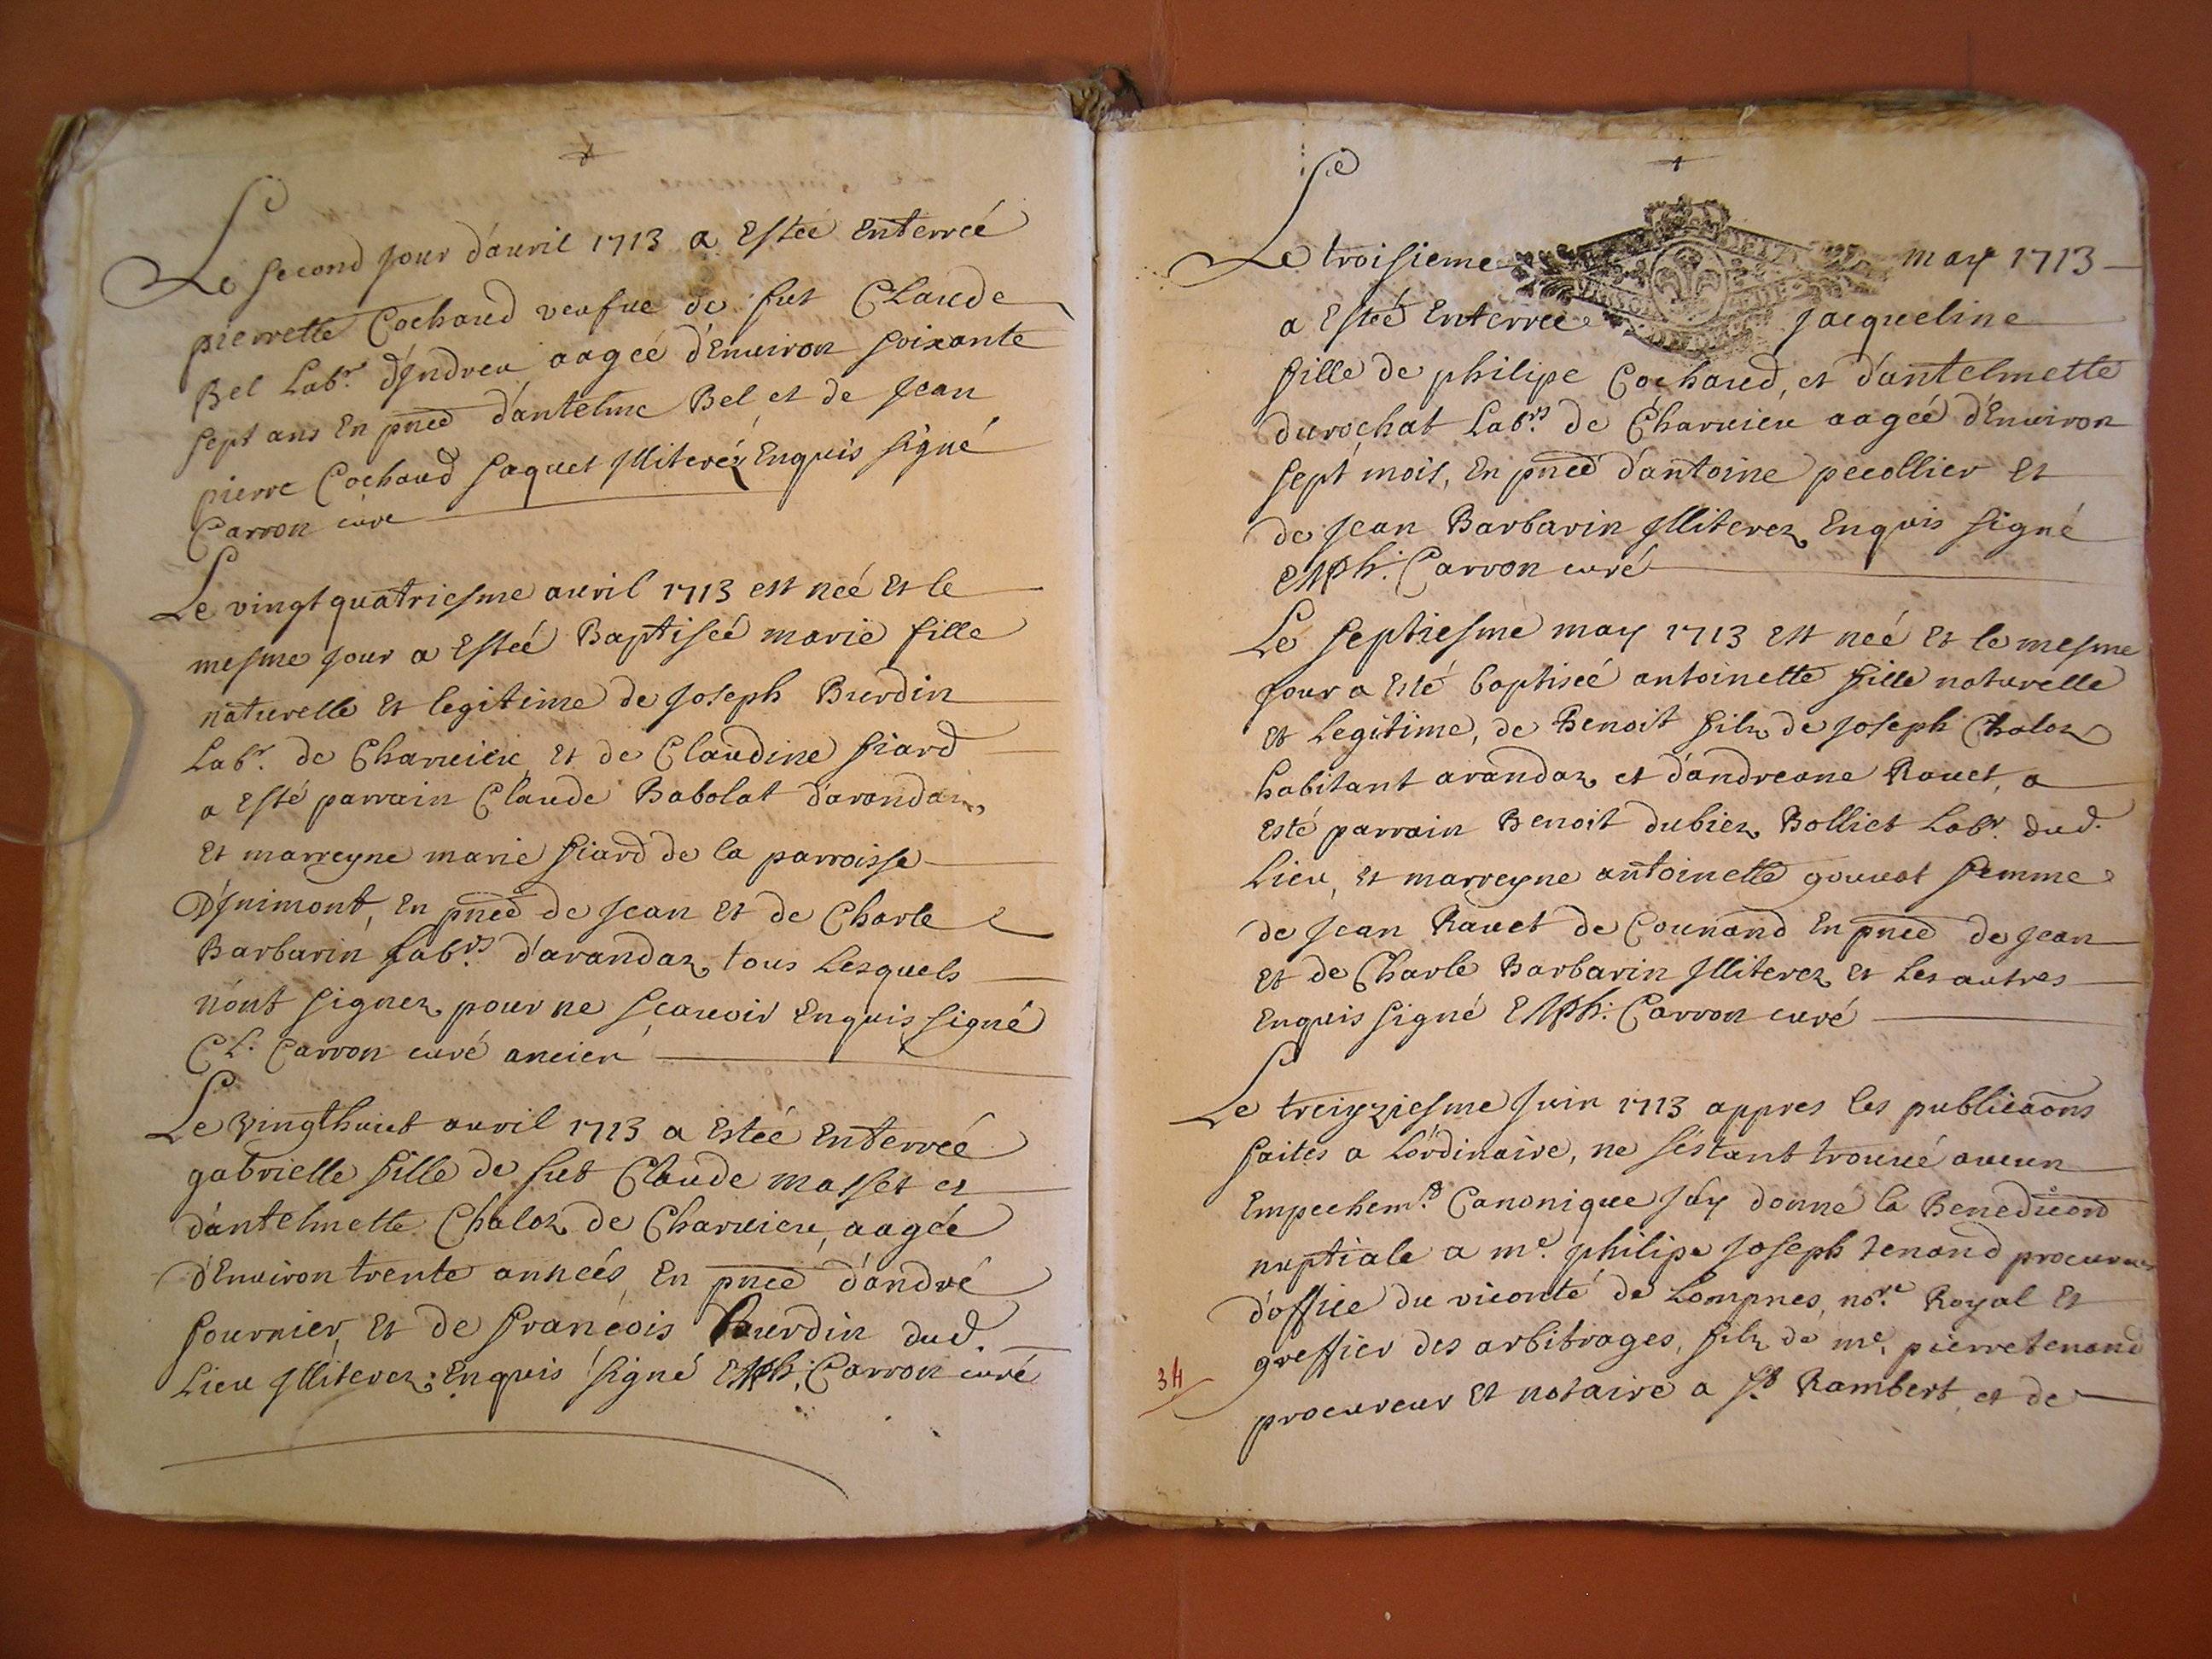 Le second jour d'auril 1713 a Estée Enterrée
pierrette Cochaud veufue de fut Claude
Bel Labr. d'Indrea aagée d'Enuiron soixante
sept ans En pnce d'antelme Bel et de Jean
pierre Cochaud Jaquet Illiterez Enquis signé
Carron curé
Le vingt quatriesme auril 1713 est née Et le
mesme jour a Estée Baptisée marie fille
naturelle Et legitime de Joseph Burdin
Labr. de Charuieu, Et de Claudine fiard
a Esté parrain Claude Babolat d'arandas
Et marreyne marie fiard de la parroisse
D'Inimont, En pnce de Jean Et de Charle
Barbarin Labrs. d'arandaz, tous Lesquels
n'ont signez pour ne sçauoir Enquis signé
Cl. Carron curé ancien
Le vingthuict auril 1713 a Estée Enterreé
gabrielle fille de fut Claude masset et
d'antelmette Chaloz de Charuieu, aagée
d'Enuiron trente années, En pnce d'andré
fournier, Et de françois Burdin dud.
Lieu Illiterez Enquis signé Carron curé
Le troisieme may 1713
a Estée Enterree Jacqueline
fille de philipe Cochaud, et d'antelmette
durochat Labrs. de Charuieu aagée d'Enuiron
sept mois, En pnce d'antoine pecollier Et
de Jean Barbarin Illiterez Enquis signé
Carron curé
Le septiesme may 1713 Est née Et le mesme
jour a Esté baptisée antoinette fille naturelle
Et Legitime, de Benoit filz de Joseph Chaloz
habitant arandaz, et d'andreane Rauet, a
Esté parrain Benoit dubiez Bolliet Labr. dud.
Lieu, Et marreyne antoinette gouuat femme
de Jean Rauet de Counand En pnce de Jean
Et de Charle Barbarin Illiterez Et Les autres
Enquis signé Carron curé
Le treizziesme Juin 1713 appres les publicaons
faites a L'ordinaire, ne s'estant trouué aucun
Empechemt. Canonique J'ay donné la Benedicon
nuptiale a me. philipe Joseph tenand procureur
d'office du viconté de Lompnes, nore. Royal Et
greffier des arbitrages, filz de me. pierre tenand
34
procureur Et notaire a St Rambert, et de